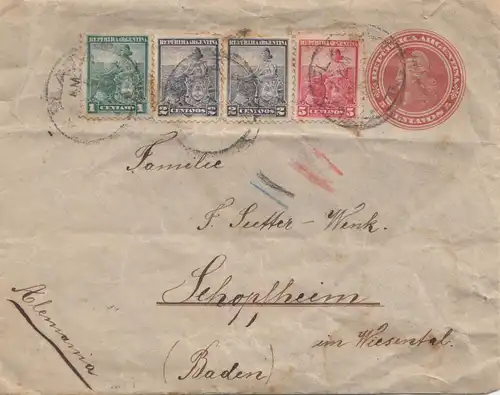 REPUBLICA ARGENTINA
1 CENTAVO 1
REPUBLICA ARGENTINA
2 CENTAVOS 2
REPUBLICA ARGENTINA
2 CENTAVOS 2
REPUBLICA ARGENTINA
5 CENTAVOS 5
REPUBLICA ARGENTINA
CENTAVOS
Familie
F. Sutter - Wenk.
Schopfheim
im Wiesental.
(Baden)
Alemania